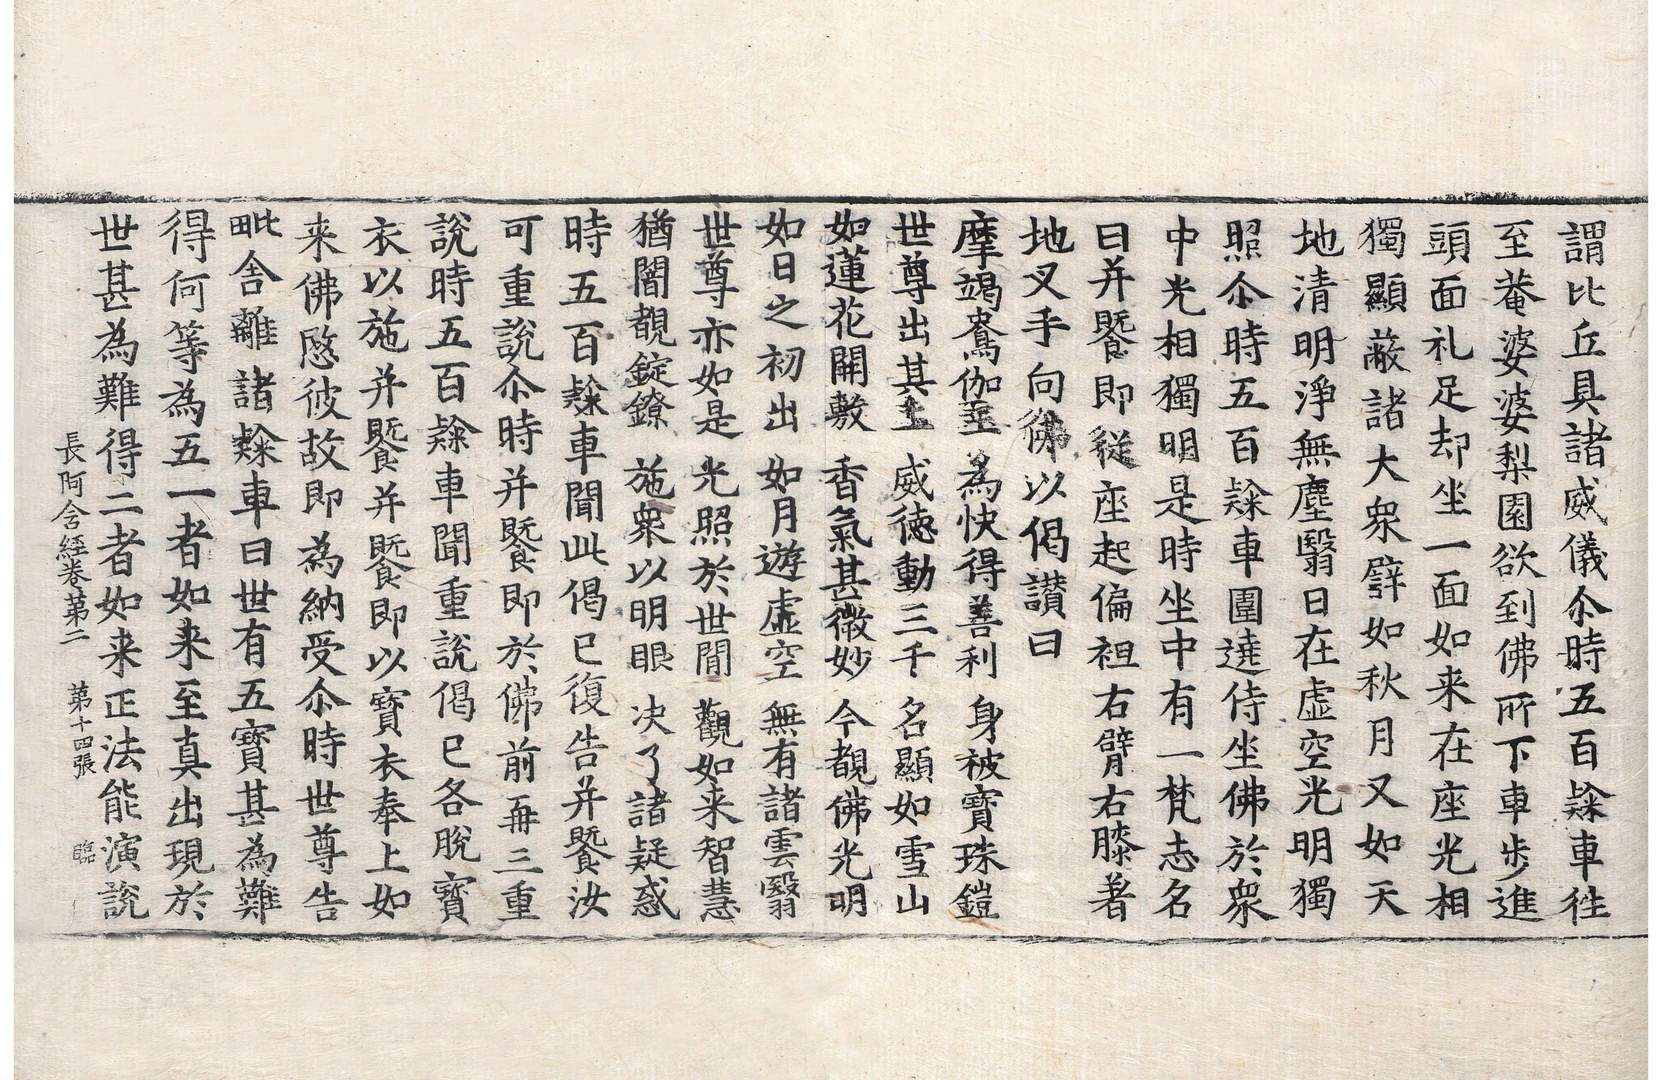 謂比丘具諸威儀尒時五百𨽻車徃
至菴婆婆梨園欲到佛所下車步進
頭面礼足却坐一面如来在座光相
獨顯蔽諸大衆譬如秋月又如天
地清明淨無塵翳日在虛空光明獨
照尒時五百𨽻車圍遶侍坐佛於衆
中光相獨明是時坐中有一梵志名
曰并曁即從座起偏袒右臂右膝著
地叉手向佛以偈讃曰
摩竭鴦伽王 為快得善利 身被寶珠鎧
世尊出其土 威德動三千 名顯如雪山
如蓮花開敷 香氣甚微妙 今覩佛光明
如日之初出 如月遊虛空 無有諸雲翳
世尊亦如是 光照於世閒 觀如来智慧
猶闇覩錠鐐 施衆以明眼 决了諸疑惑
時五百𨽻車聞此偈已復告并曁汝
可重說尒時并曁即於佛前再三重
說時五百𨽻車聞重說偈已各脫寶
衣以施并曁并曁即以寶衣奉上如
来佛愍彼故即為納受尒時世尊告
毗舍離諸𨽻車曰世有五寶甚為難
得何等為五一者如来至真出現於
世甚為難得二者如来正法能演說
長阿含經卷第二 第十四張 臨